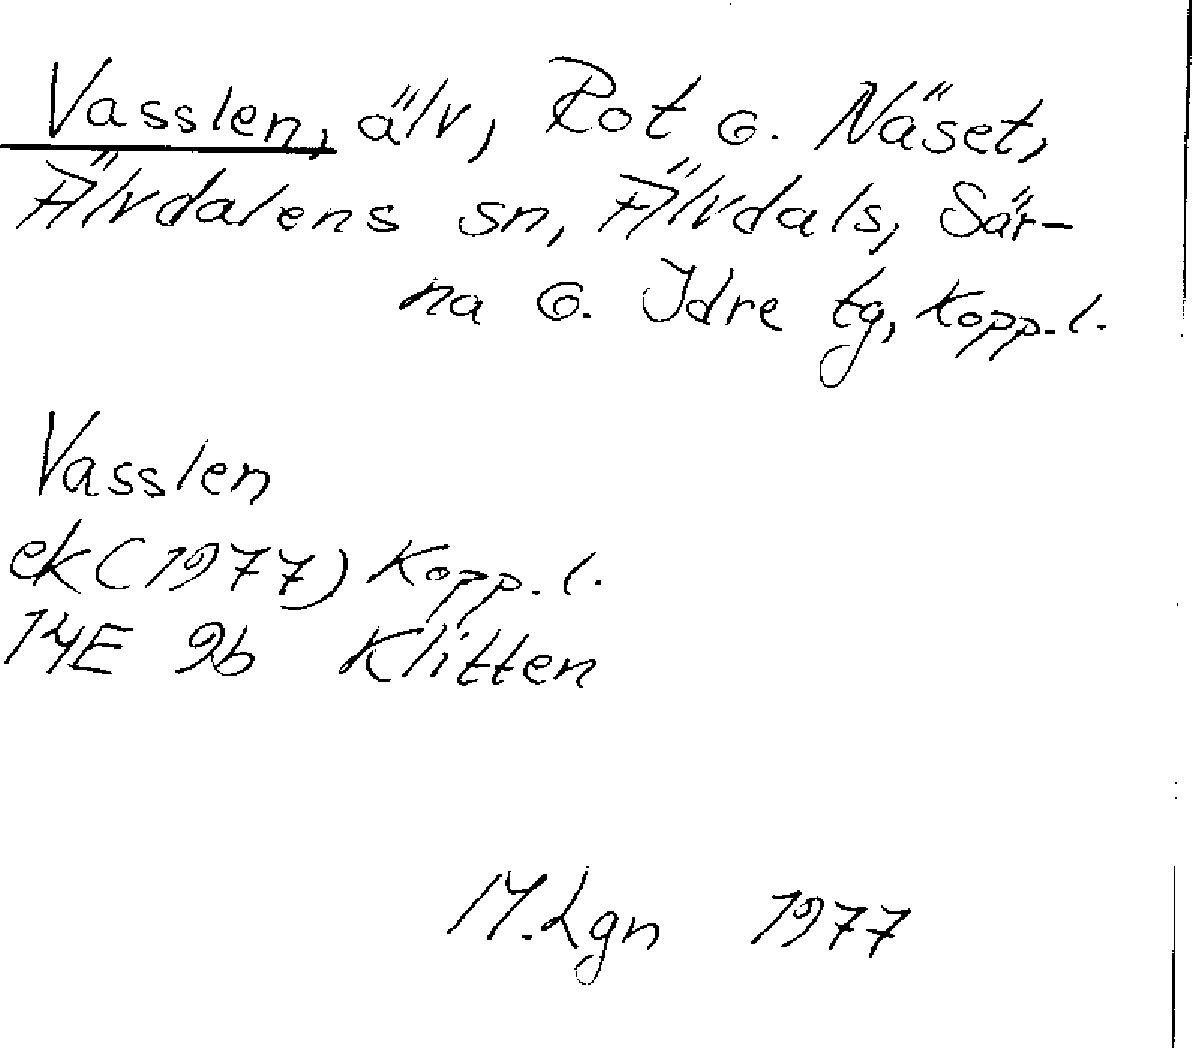 Vasslen, älv, Rot o. Näset,
Älvdalens sn, Älvdals, Sär-
na o. Idre tg, Kopp. l.
Vasslen
ek (1977) Kopp. l.
14E 9b Klitten
M. Lgn 1977